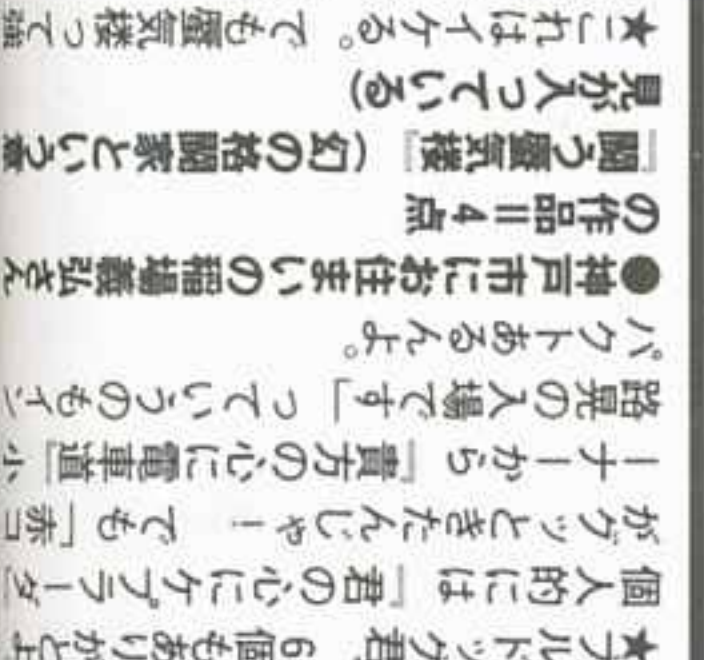 ★ブルドッグ君、6個もありがとよ
個人的には『君の心にケブラーダ』
がグッときたんじゃー！　でも「赤コ
ーナーから『貴方の心に電車道』小
路晃の入場です」っていうのもイン
パクトあるんよ。
●神戸市にお住まいの稲場義弘さん
の作品＝4点
『闘う蜃気楼』（幻の格闘家という意
見が入っている）
★これはイケる。でも蜃気楼って強